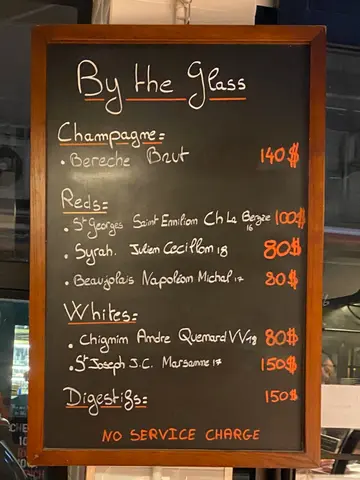 By the Glass
Champagne:
• Bereche Brut 140$
Reds:
• St Georges Saint Emilion Ch La Bergère 16 100$
• Syrah. Julien Cecillon 18 80$
• Beaujolais Napoléon Michal 17 80$
Whites:
• Chignin Andre Quenard VV 18 80$
• St Joseph J.C. Marsanne 17 150$
Digestifs: 150$
NO SERVICE CHARGE